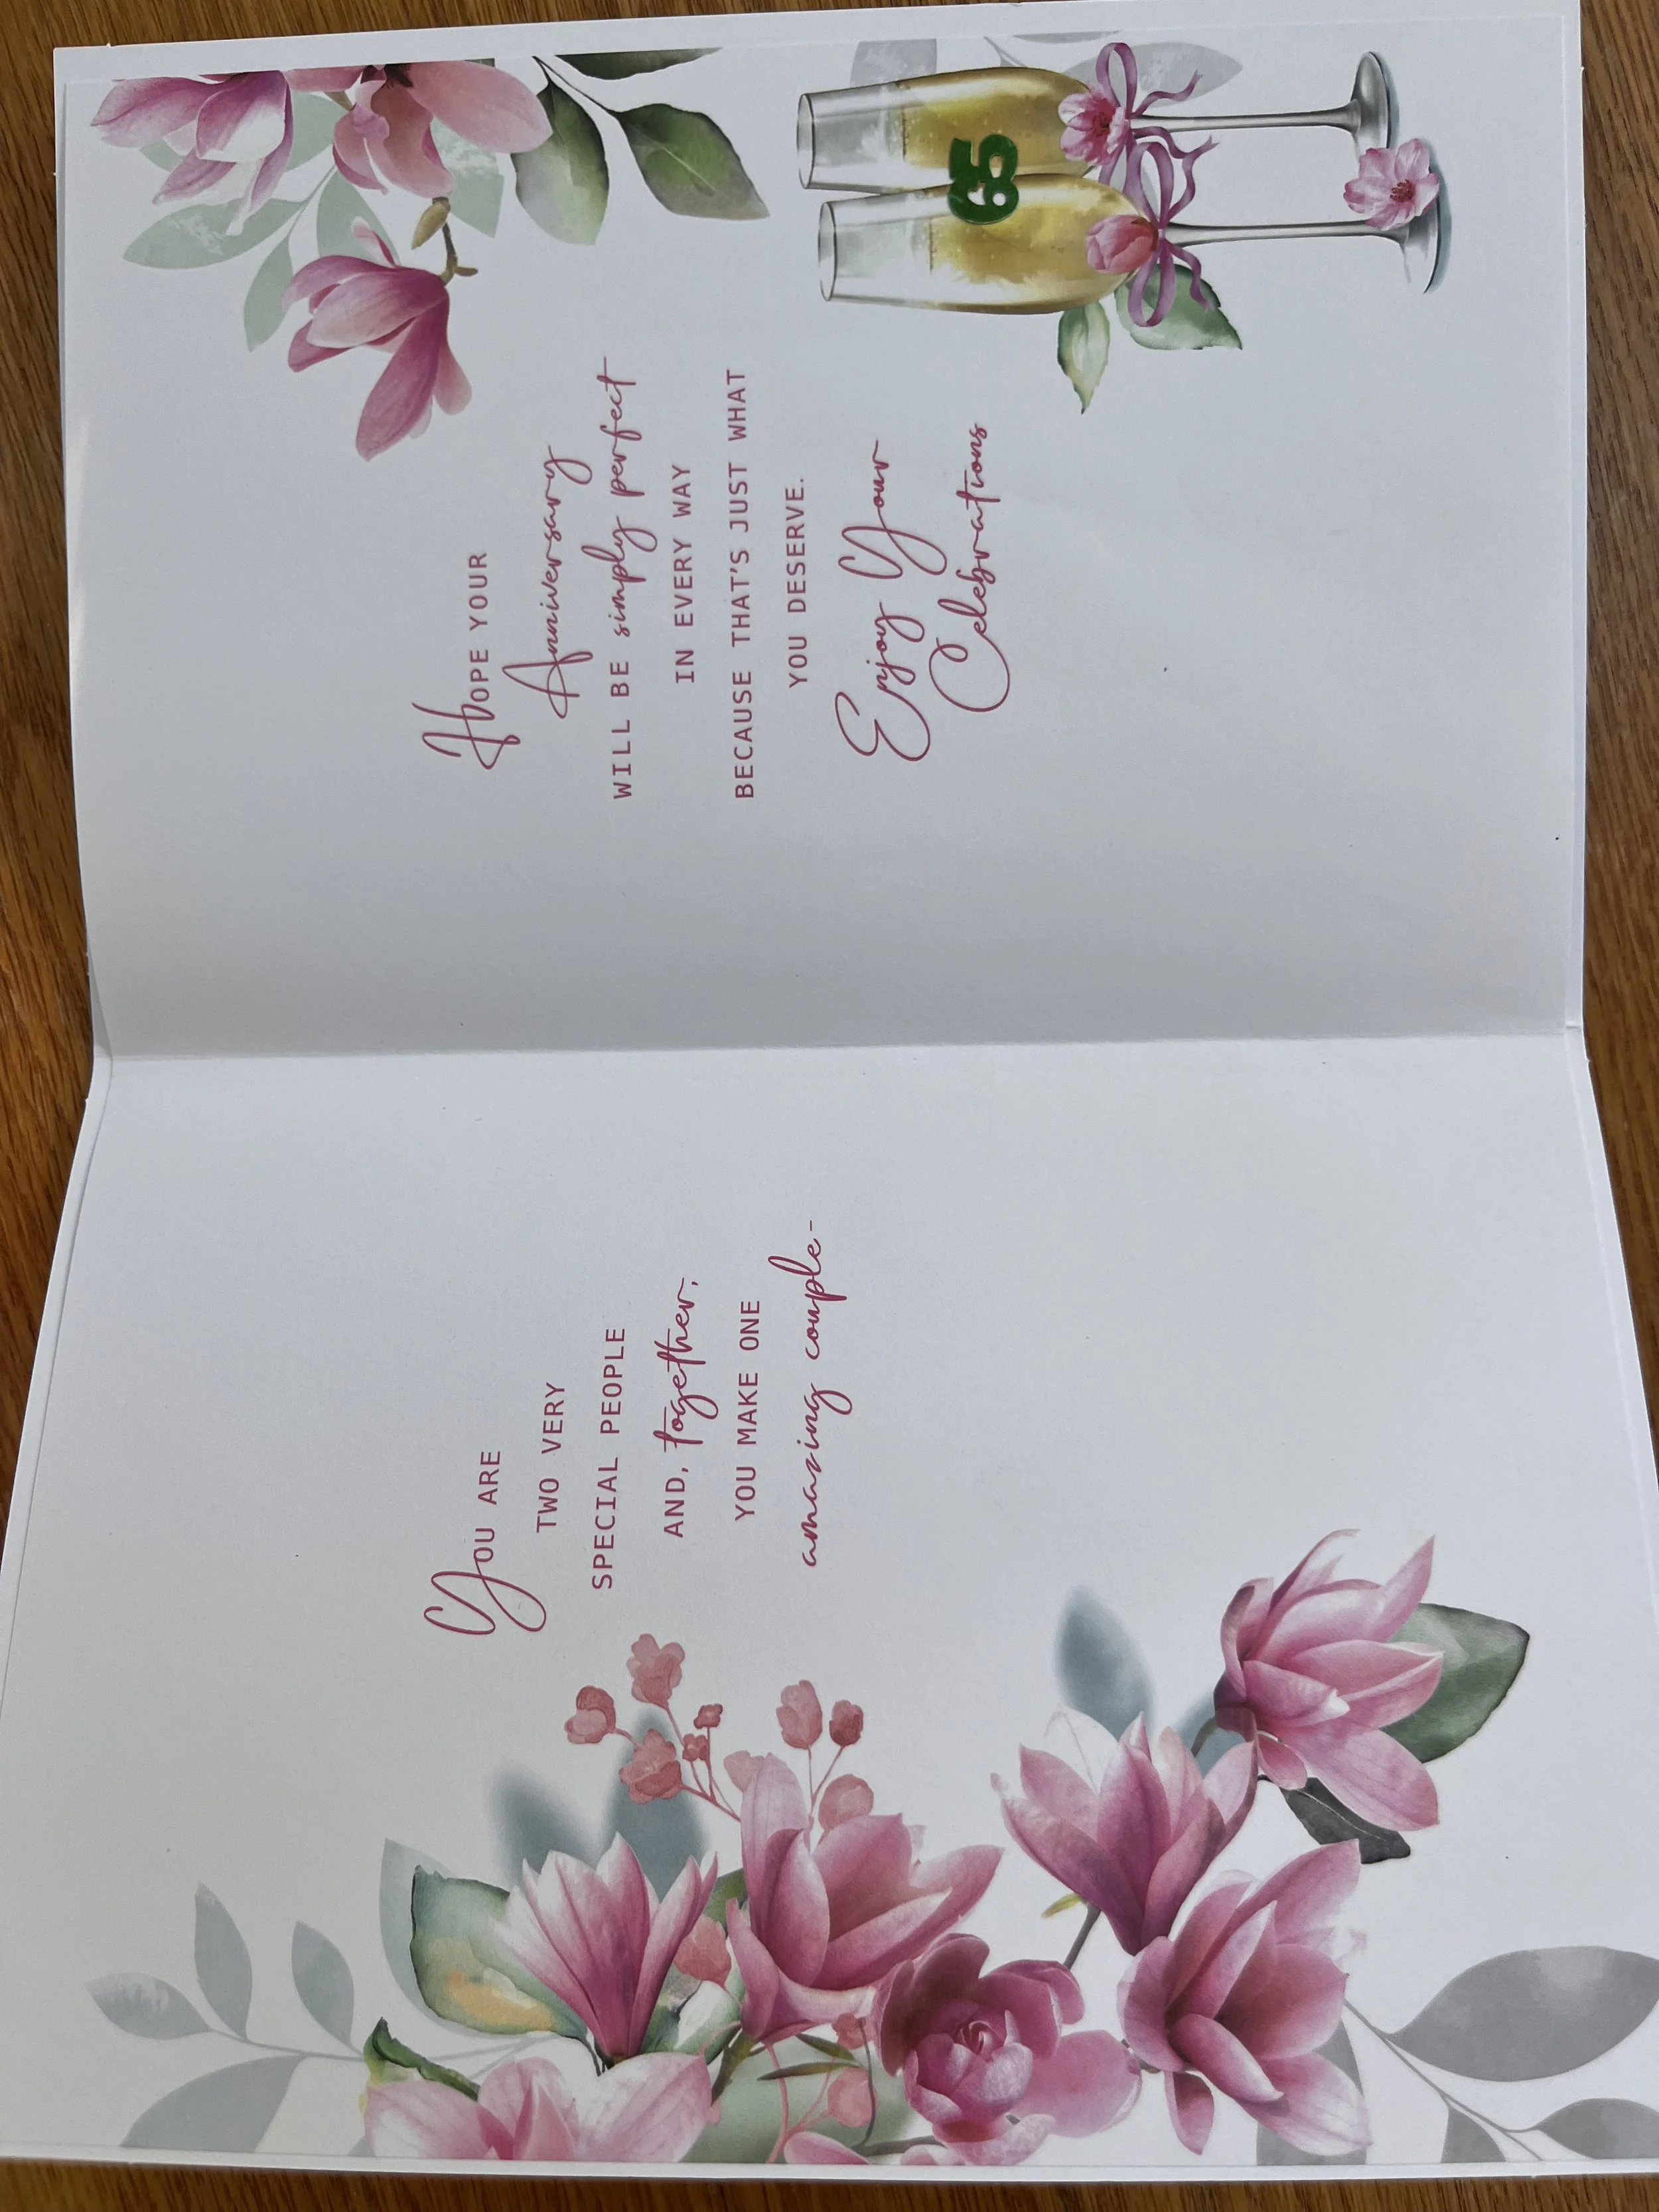 You are
two very
special people
and, together,
you make one
amazing couple-
Hope your
Anniversary
will be simply perfect
in every way
because that's just what
you deserve.
Enjoy Your
Celebrations
65